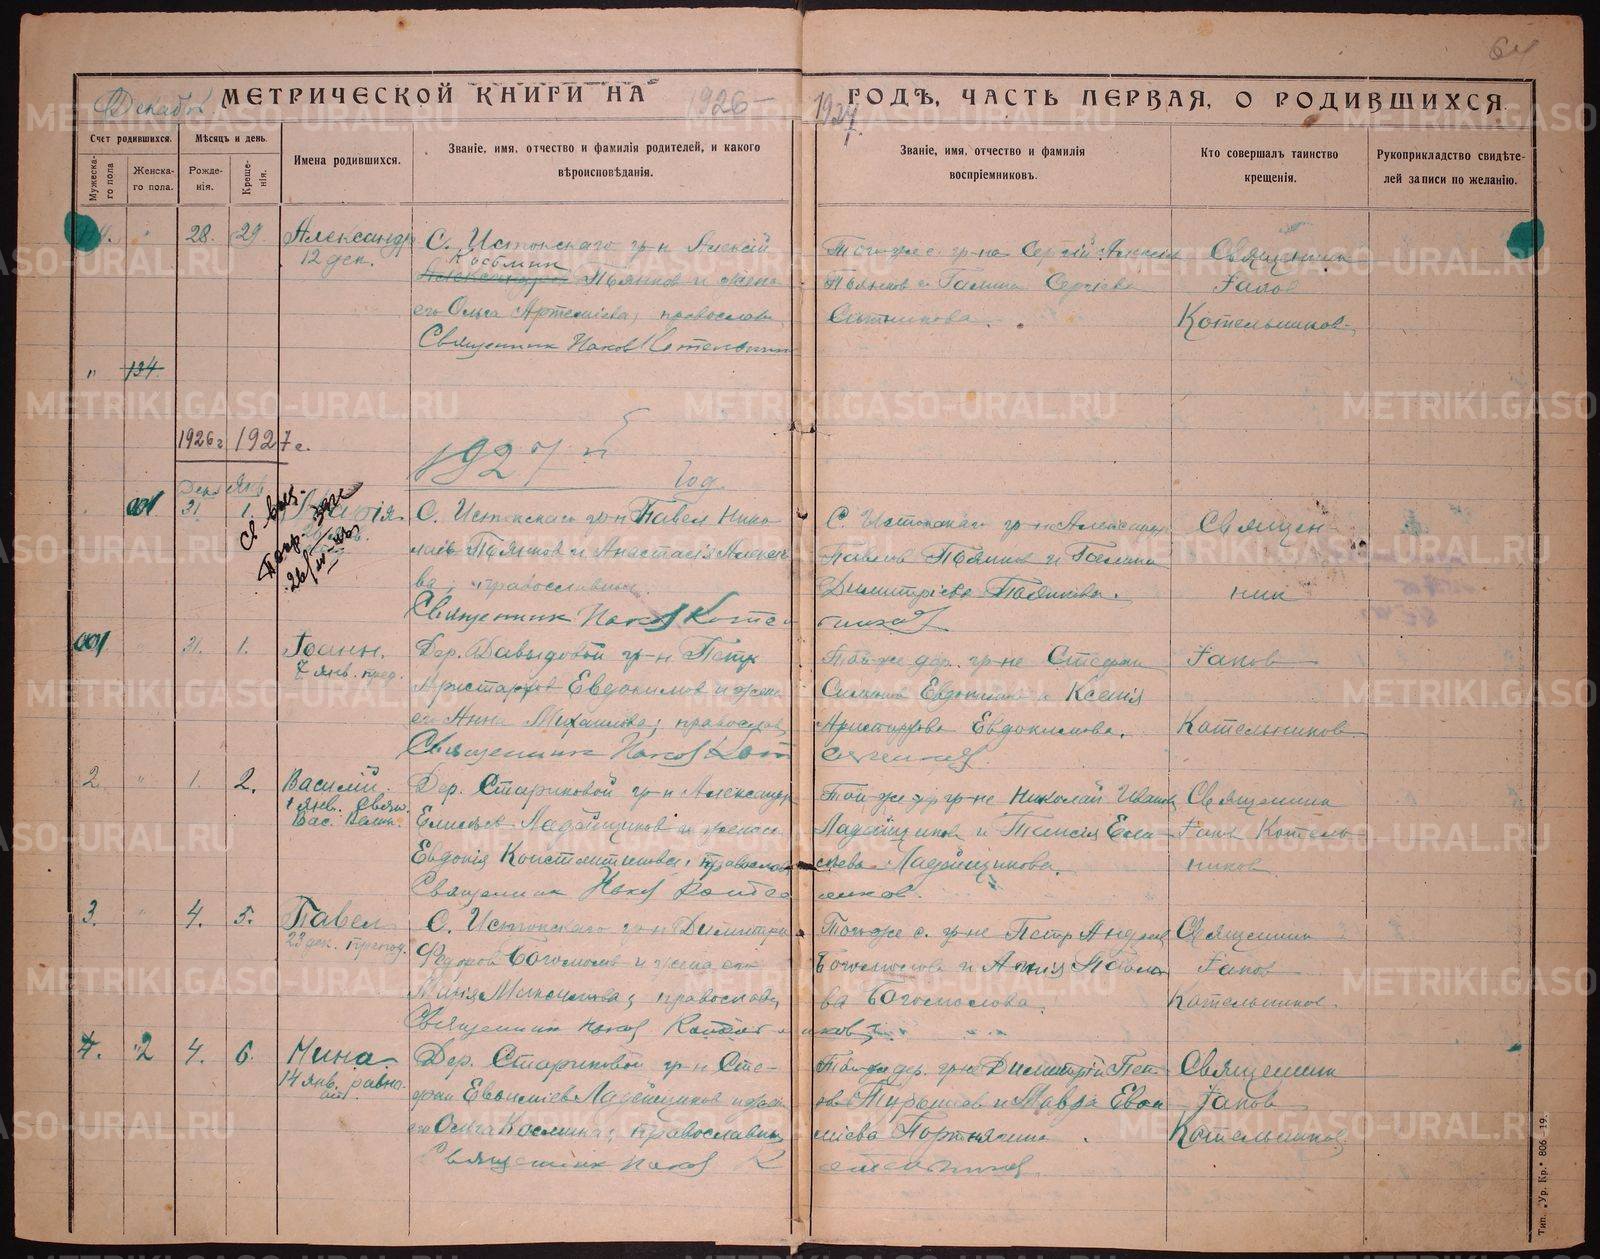 64
Декабрь МЕТРИЧЕСКОЙ КНИГИ НА 1926 - 1927 ГОДЪ, ЧАСТЬ ПЕРВАЯ, О РОДИВШИХСЯ.
Счет родившихся.
Мужеска-го пола
Женска-го пола.
Мѣсяцъ и день.
Рожде-нія.
Креще-нія.
Имена родившихся.
Званіе, имя, отчество и фамилія родителей, и какого
вѣроисповѣданія.
Званіе, имя, отчество и фамилія
воспріемниковъ.
Кто совершалъ таинство
крещенія.
Рукоприкладство свидѣте-
лей записи по желанію.
28. 29. Александр
12 дек.
С. Истокскаго гр-н Алексій
Космин
Александров Пьянков и жена
его Ольга Артемієва, православн
Священник Иаков Котельник
Того же с. гр-не Сергій Алексіев
Пьянков и Галина Сергієва
Ситникова.
Священник
Іаков
Котельников
" 134.
1926 г 1927 г.
1927 й
год
Дек. Янв
001 31. 1. Марія
С. Истокскаго гр-н Павел Нико
лаєв Пьянков и Анастасія Алексіе
ва, православныє.
Священник Иаков Котель
ников
С. Истокскаго гр-не Александр
Павлов Пьянков и Галина
Димитріева Пьянкова.
Священ-
ник
001 31. 1. Іоанн.
7 янв. пред.
Дер. Давыдовой гр-н Петр
Аристархов Евдокимов и жена
его Анна Михаилова, православ
Священник Иаков Кот
ельников
Той же дер. гр-не Стефан
Симонов Евдокимов и Ксенія
Аристархова Евдокимова.
Іаков
Котельников
2. " 1. 2. Василій.
1 янв. Свят.
Вас. Велик.
Дер. Стариковой гр-н Александр
Елисеєв Ладейщиков и жена его
Евдокія Константинова, православн
Священник Иаков Котел
ников.
Той же др гр-не Николай Иванов
Ладейщиков и Таисія Ели
сеева Ладейщикова.
Священник
Іаков Котель-
ников.
3. " 4. 5. Павел
23 дек. препод.
С. Истокскаго гр-н Димитрій
Федоров Богомолов и жена его
Марія Максимова, православн
Священник Иаков Котельников
Того же с. гр-не Петр Андреев
Богомолов и Анна Павло
ва Богомолова.
Священник
Іаков
Котельников.
4. "2 4. 6. Нина
14 янв. равно
ап.
Дер. Стариковой гр-н Сте-
фан Евфиміев Ладейщиков и жена
его Ольга Космина, православны
Священник Иаков К
отельников
Той же дер. гр-не Димитрій Пет-
ров и Мавра Евфи
міева
Священник
Іаков
Котельников
Тип. „Ур. Кр.“ 806—19.
METRIKI.GASO-URAL.RU